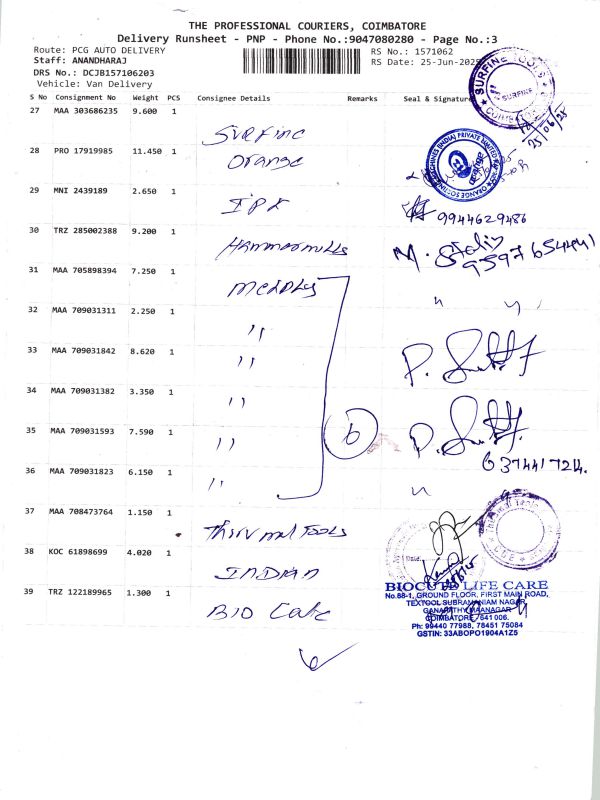 THE PROFESSIONAL COURIERS, COIMBATORE
Delivery Runsheet - PNP - Phone No.:9047080280 - Page No.:3
Route: PCG AUTO DELIVERY
RS No.: 1571062
Staff: ANANDHARAJ
RS Date: 25-Jun-2025
DRS No.: DCJB157106203
Vehicle: Van Delivery
S No Consignment No Weight PCS Consignee Details Remarks Seal & Signature
27 MAA 303686235 9.600 1
SURFINE TOOLS
SURFINE
25/06/25
Surfine
28 PRO 17919985 11.450 1
Orange
orange
29 MNI 2439189 2.650 1
9944629486
30 TRZ 285002388 9.200 1
Hammermills
M.
31 MAA 705898394 7.250 1
32 MAA 709031311 2.250 1
"
33 MAA 709031842 8.620 1
"
34 MAA 709031382 3.350 1
"
35 MAA 709031593 7.590 1
"
6
36 MAA 709031823 6.150 1
"
"
37 MAA 708473764 1.150 1
Tools
38 KOC 61898699 4.020 1
INDIAN
39 TRZ 122189965 1.300 1
BIO Care
LIFE CARE
No.68-1, GROUND FLOOR, FIRST MAIN ROAD,
TEXTOOL SUBRAMANIAM NAGAR,
GANAPATHY MAANAGAR
COIMBATORE, 641 006.
Ph: 99440 77988, 78451 75084
GSTIN: 33ABOPO1904A1Z5